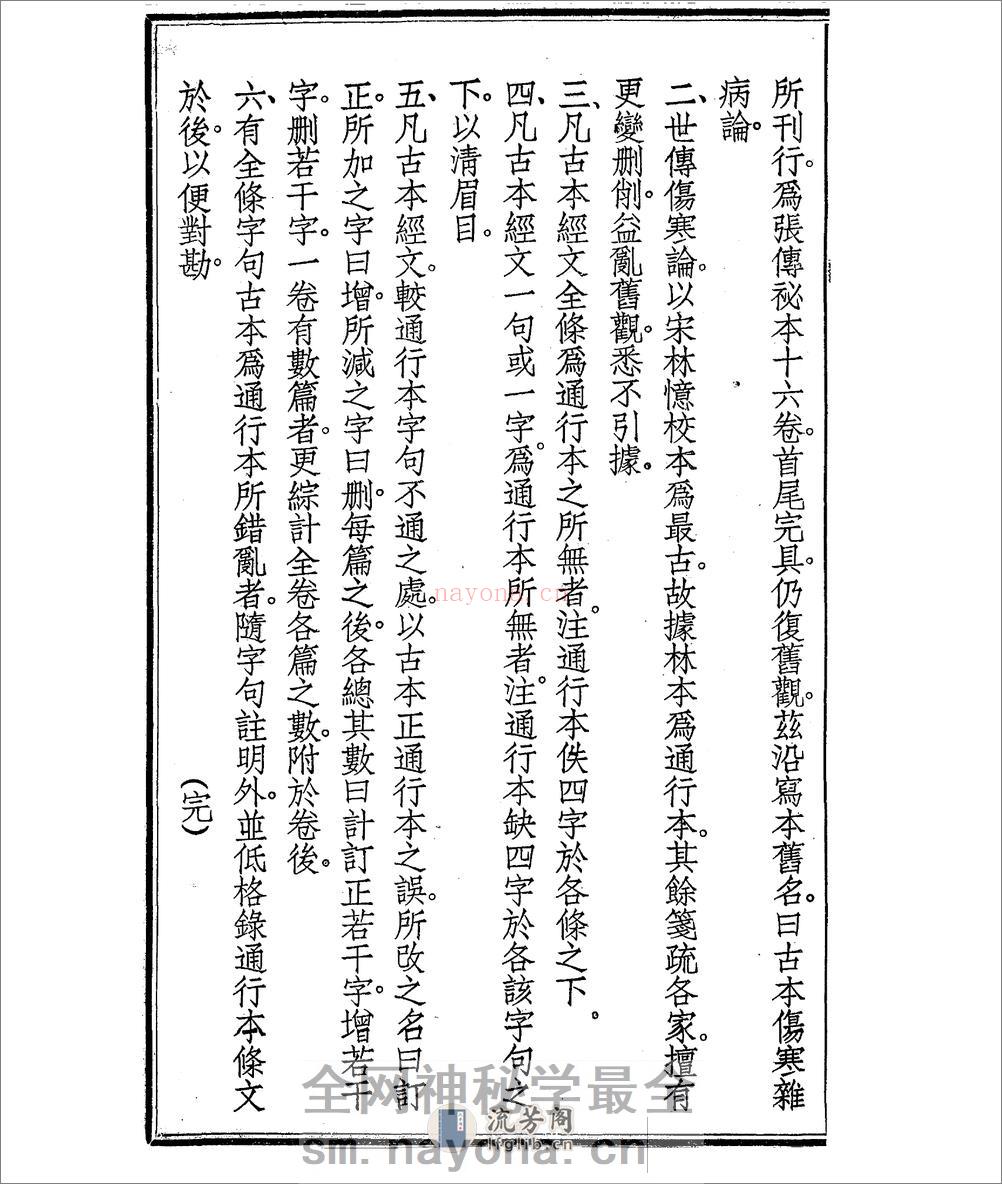 所刊行。爲張傳祕本十六卷。首尾完具。仍復舊觀。茲沿寫本舊名。曰古本傷寒雜
病論。
二、世傳傷寒論。以宋林憶校本爲最古。故據林本爲通行本。其餘箋疏各家。擅有
更變删削。益亂舊觀。悉不引據。
三、凡古本經文全條爲通行本之所無者。注通行本佚四字於各條之下。
四、凡古本經文一句或一字。爲通行本所無者。注通行本缺四字於各該字句之
下。以清眉目。
五、凡古本經文。較通行本字句不通之處。以古本正通行本之誤。所改之名曰訂
正。所加之字曰增。所減之字曰删。每篇之後。各總其數曰計訂正若干字。增若干
字。删若干字。一卷有數篇者。更綜計全卷各篇之數。附於卷後。
六、有全條字句古本爲通行本所錯亂者。隨字句註明外。並低格錄通行本條文
於後。以便對勘。
(完)
nayona.cn
全网神秘学最全
流芳阁
lfglib.cn
sm.nayona.cn